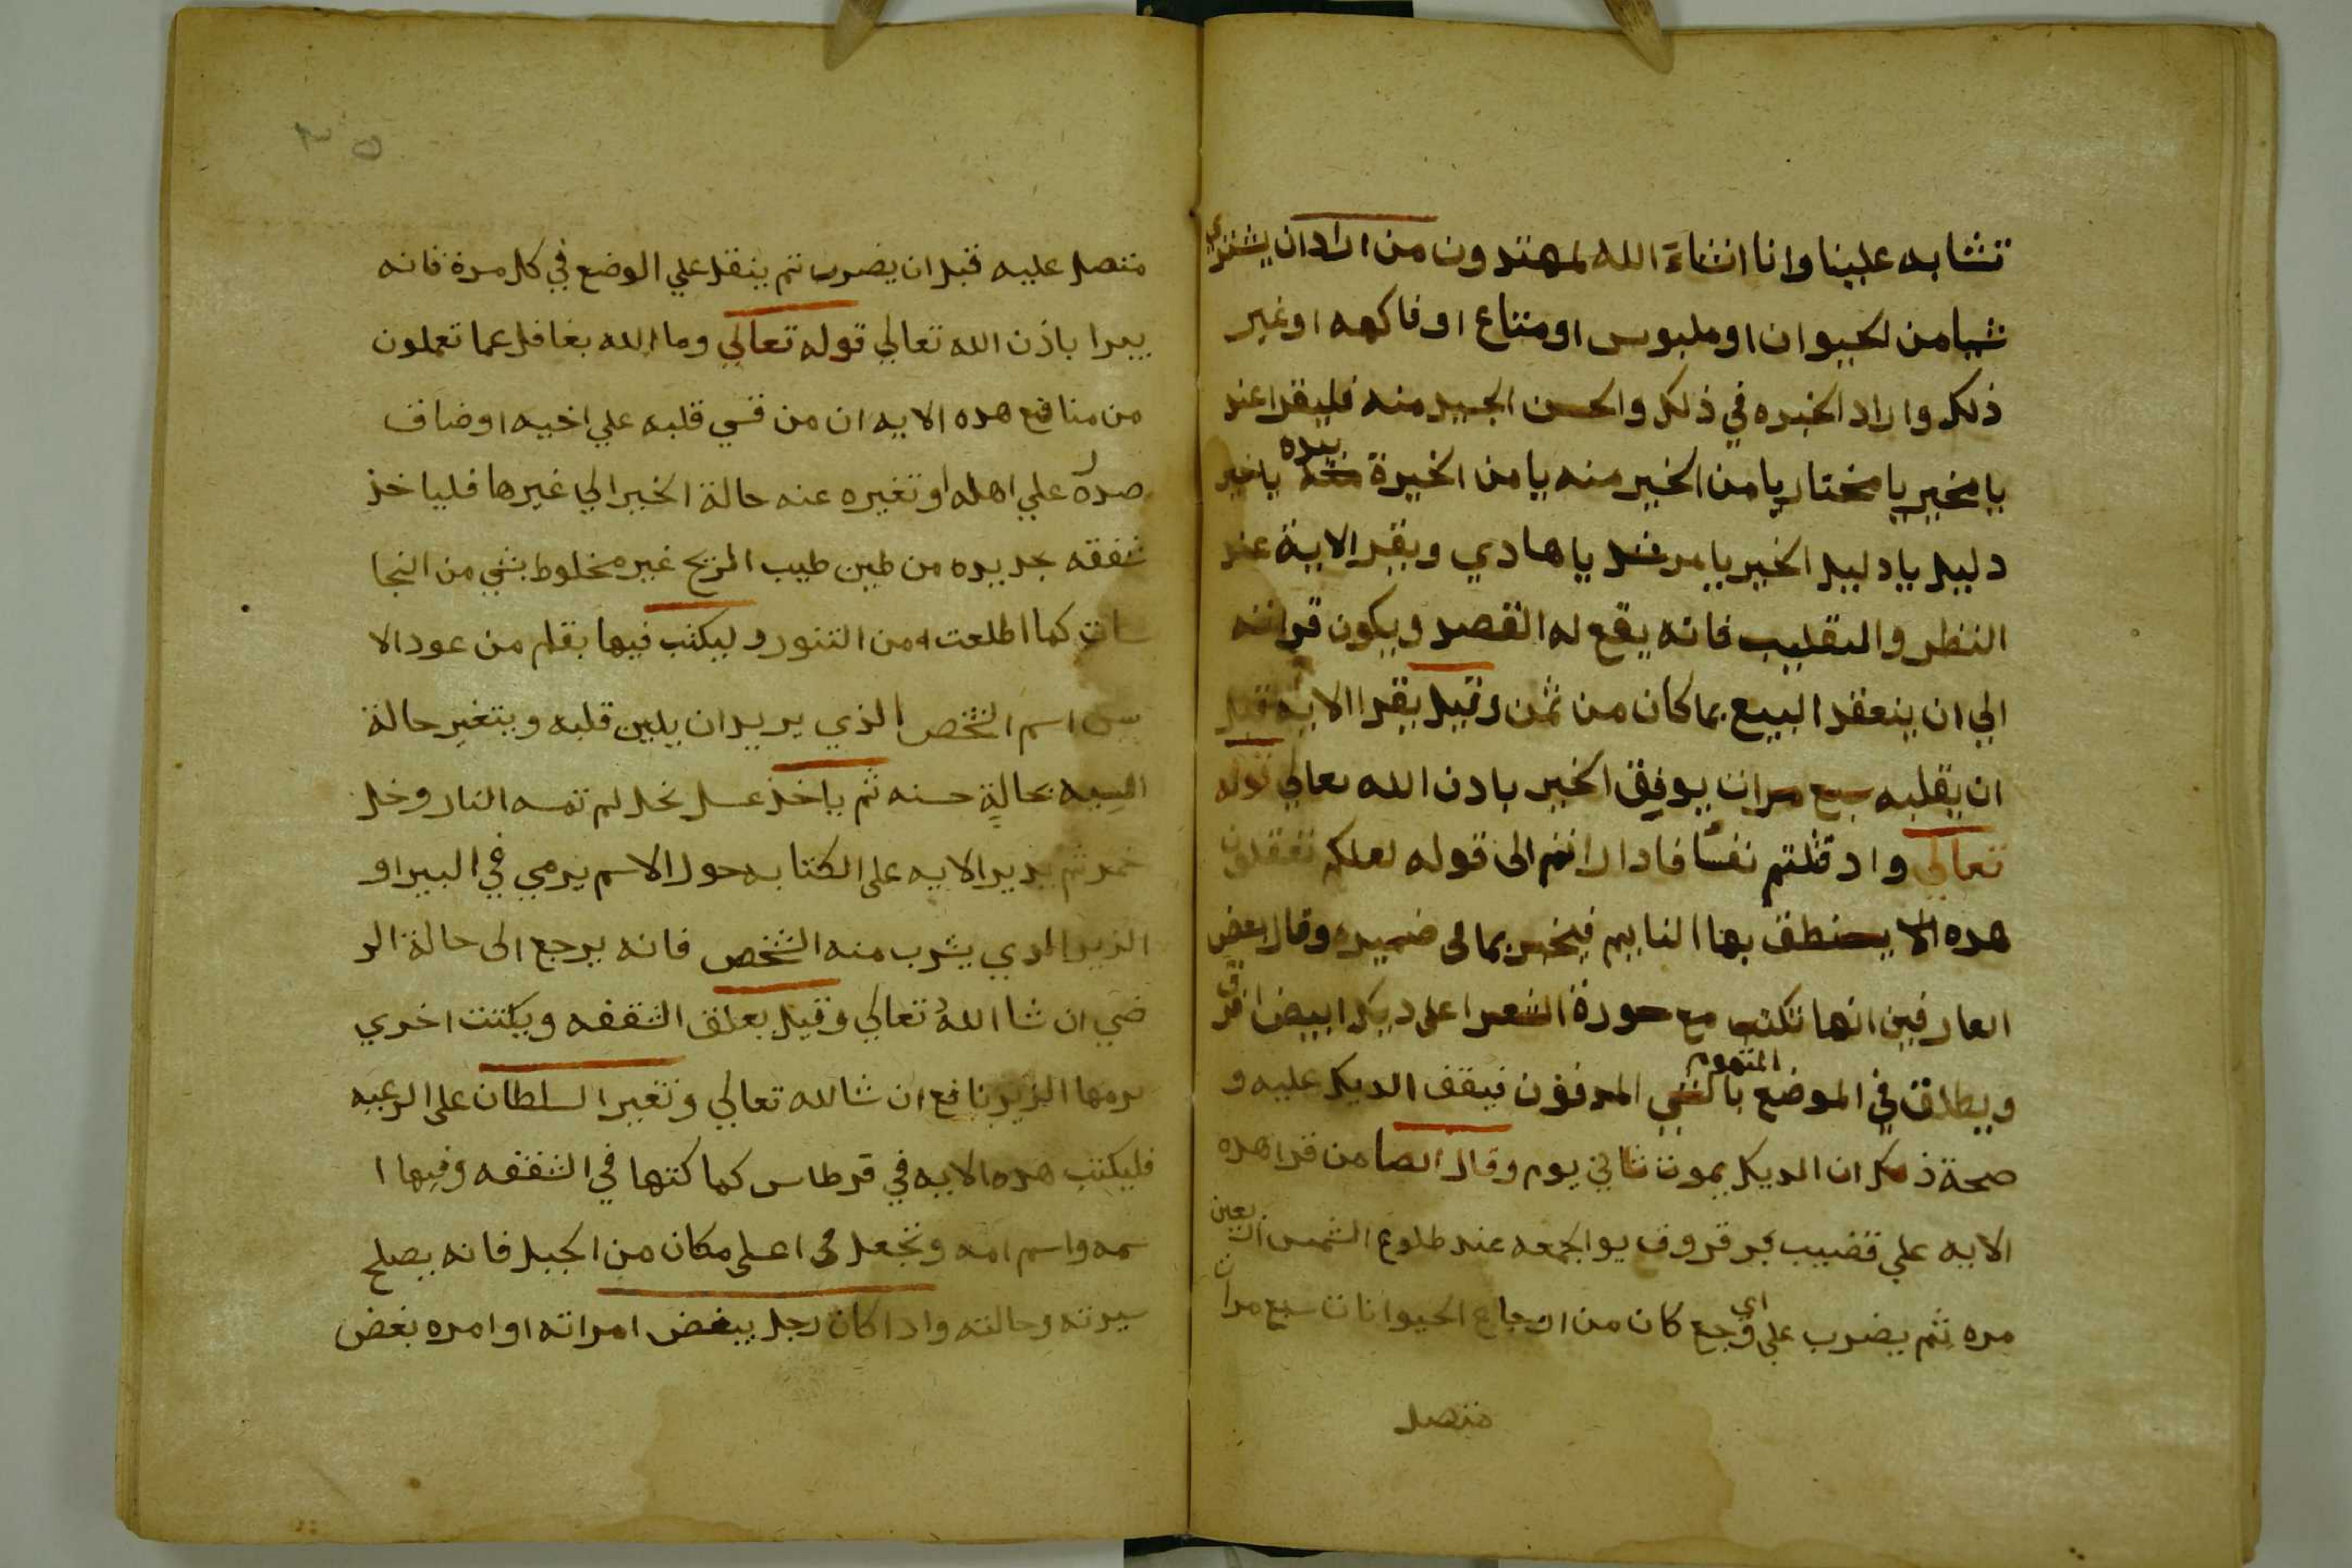 تشابه علينا وانا انشاء الله لمهتدون من اراد ان يشتري
شيا من الحيوان او ملبوس او متاع او فاكهه او غير
ذلك واراد الخيره في ذلك والحسن الجيد منه فليقرا عند
يا مخير يا مختار يا من الخير منه يا من الخيرة بيده يا خير
دليل يا دليل الخير يا مرشد يا هادي ويقرا الاية عند
النظر والتقليب فانه يقع له القصد ويكون قراته
الي ان ينعقد البيع بما كان من ثمن وقيل يقرا الايه قبل
ان يقلبه سبع مرات يوفق الخير بادن الله تعالي قوله
تعالي واد قتلتم نفسا فادارانتم الى قوله لعلكم تعقلون
هده الا ينطق بها النايم فيخبر بما في ضميره وقال بعض
العارفين انها تكتب مع سورة الشعرا على ديك ابيض افرق
ويطلق في الموضع المتهوم بالشي المدفون فيقف الديك عليه و
صحة ذلك ان الديك يموت ثاني يوم وقال ايضا من قرا هده
الايه علي قضيب بر قروق يو الجمعه عند طلوع الشمس اربعين
مره ثم يضرب علي اي وجع كان من اوجاع الحيوانات سبع مرات
متصل
متصل عليه قبل ان يضرب ثم ينقل علي الوضع في كل مرة فانه
يبرا باذن الله تعالي قوله تعالي وما الله بغافل عما تعملون
من منافع هده الايه ان من قسي قلبه علي اخيه او ضاق
صدره علي اهله او تغيره عنه حالة الخير الي غيرها فلياخذ
شقفه جديده من طين طيب الريح غير مخلوط بشي من النجا
سات كما اطلعت من التنور وليكتب فيها بقلم من عود الا
س اسم الشخص الذي يريد ان يلين قلبه ويتغير حالة
السيه بحالة حسنه ثم ياخذ عسل نحل لم تمسه النار وخل
خمر ثم يدير الايه على الكتابه حول الاسم يرمي في البير او
الزير الدي يشرب منه الشخص فانه يرجع الى حالة الر
ضي ان شا الله تعالي وقيل يعلق الشقفه ويكتب اخري
يرمها الزير نافع ان شالله تعالي وتغير السلطان على الرعيه
فليكتب هده الايه في قرطاس كما كتها في الشقفه وفيها ا
سمه واسم امه وتجعل في اعلى مكان من الجبل فانه يصلح
سيرته وحالته وادا كان رجل يبغض امراته او امره بغض